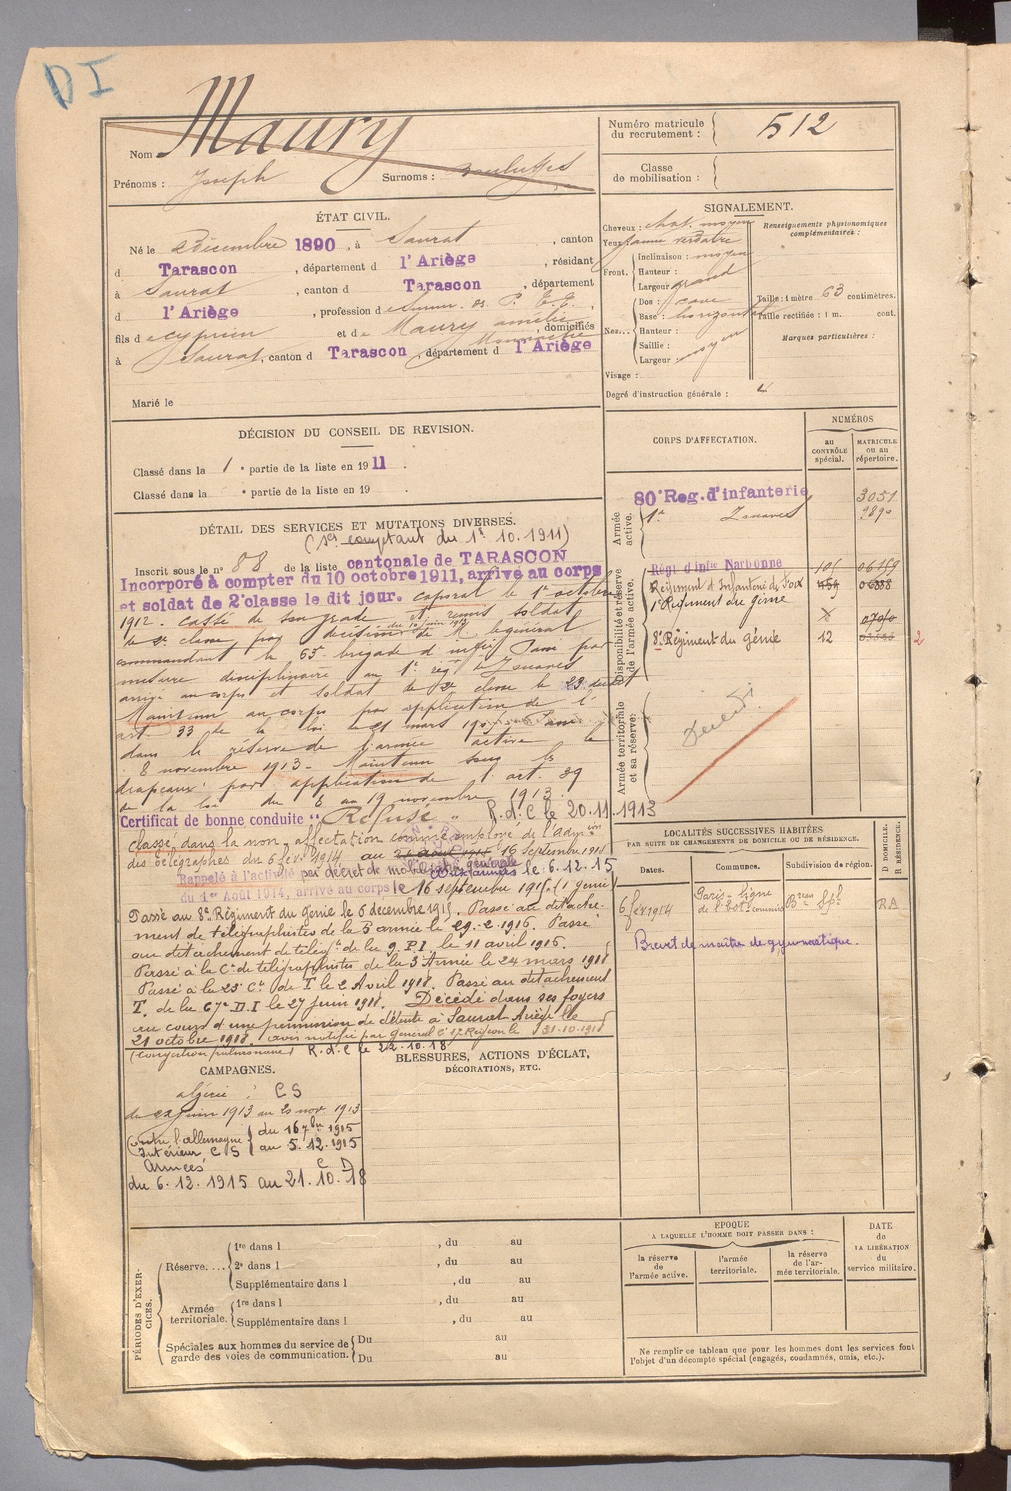 D I
Nom Maury
Prénoms : Joseph Surnoms :
Numéro matricule du recrutement : 512
Classe de mobilisation :
ÉTAT CIVIL.
Né le 2 Décembre 1890, à Saurat, canton
d Tarascon, département d l'Ariège, résidant
à Saurat, canton d Tarascon, département
d l'Ariège, profession d P. T. T.,
fils d e cyprien et d e Maury amélie, domiciliés
à Saurat, canton d Tarascon, département d l'Ariège
Marié le
SIGNALEMENT.
Cheveux : chat. moyen
Yeux jaune verdâtre
Front. Inclinaison : moyen
Hauteur :
Largeur grand
Nez... Dos : cave
Base : horizontal
Hauteur :
Saillie :
Largeur moyen
Visage :
Degré d'instruction générale : 4
Renseignements physionomiques complémentaires :
Taille : 1 mètre 63 centimètres.
Taille rectifiée : 1 m. cent.
Marques particulières :
DÉCISION DU CONSEIL DE REVISION.
Classé dans la 1 e partie de la liste en 19 11.
Classé dans la e partie de la liste en 19 .
CORPS D'AFFECTATION.
NUMÉROS
au CONTRÔLE spécial.
MATRICULE ou au répertoire.
Armée active.
80e Reg. d'infanterie 3051
1er Zouaves 9890
Disponibilité et réserve de l'armée active.
Régt d'Infie Narbonne
Régiment d'Infanterie de Foix
1er Régiment du génie
8e Régiment du génie 12
2
Armée territoriale et sa réserve :
DÉTAIL DES SERVICES ET MUTATIONS DIVERSES.
(Ses comptant du 1er 10. 1911)
Inscrit sous le n° 88 de la liste cantonale de TARASCON
Incorporé à compter du 10 octobre 1911, arrivé au corps
et soldat de 2e classe le dit jour. caporal le 1er octobre
1912. Cassé de son grade et remis soldat
de 2e classe par décision du 10 juin 1913 de M. le général
commandant la 65e brigade d'infie Passé par
mesure disciplinaire au 1er régt de Zouaves
arrivé au corps et soldat de 2e classe le 23 dudit
Maintenu au corps par application de l'
art 33 de la loi du 21 mars 1905. Passé
dans la réserve de l'armée active le
8 novembre 1913. Maintenu sous les
drapeaux par application de l'art. 39
de la loi du 19 novembre 1913.
Certificat de bonne conduite " Refusé " R.d.C le 20.11.1913
Classé dans la non affectation comme employé de l'admon
des télégraphes du 6 fév. 1914 au 16 septembre 1915
Rappelé à l'activité par décret de mobilisation générale
du 1er Août 1914, arrivé au corps le 16 septembre 1915 (1 génie)
Aux armées le 6.12.15
Passé au 8e Régiment du Génie le 6 décembre 1915. Passé au détache-
ment de télégraphistes de la 5 armée le 29-2-1916. Passé
au détachement de télég. de la 9. P.I. le 11 avril 1916.
Passé à la Cie de télégraphistes de la 3e Armée le 24 mars 1918
Passé à la 25e Cie de T le 2 Avril 1918. Passé au détachement
T. de la 67e D.I le 27 juin 1918. Décédé dans ses foyers
au cours d'une permission de détente à Saurat Ariège le
21 octobre 1918. avis notifié par Général Ct 17 Région le 31-10-1918
(congestion pulmonaire) R.d.C le 22.10.18
LOCALITÉS SUCCESSIVES HABITÉES
PAR SUITE DE CHANGEMENTS DE DOMICILE OU DE RÉSIDENCE.
Dates. Communes. Subdivision de région. D DOMICILE. R RÉSIDENCE.
6 fév 1914 Paris-ligne de l'Est Bran Spl RD
Brevet de maître de gymnastique.
CAMPAGNES.
algérie : C S
du 22 juin 1913 au 20 nov 1913
Contre l'allemagne
Intérieur C S du 16 7bre 1915 au 5.12.1915
Armées C D
du 6.12.1915 au 21.10.18
BLESSURES, ACTIONS D'ÉCLAT, DÉCORATIONS, ETC.
PÉRIODES D'EXERCICES.
Réserve.... 1re dans l , du au
2e dans l , du au
Supplémentaire dans l , du au
Armée territoriale. 1re dans l , du au
Supplémentaire dans l , du au
Spéciales aux hommes du service de garde des voies de communication. Du au
Du au
EPOQUE
A LAQUELLE L'HOMME DOIT PASSER DANS :
la réserve de l'armée active.
l'armée territoriale.
la réserve de l'armée territoriale.
DATE de LA LIBÉRATION du service militaire.
Ne remplir ce tableau que pour les hommes dont les services font
l'objet d'un décompte spécial (engagés, condamnés, omis, etc.).